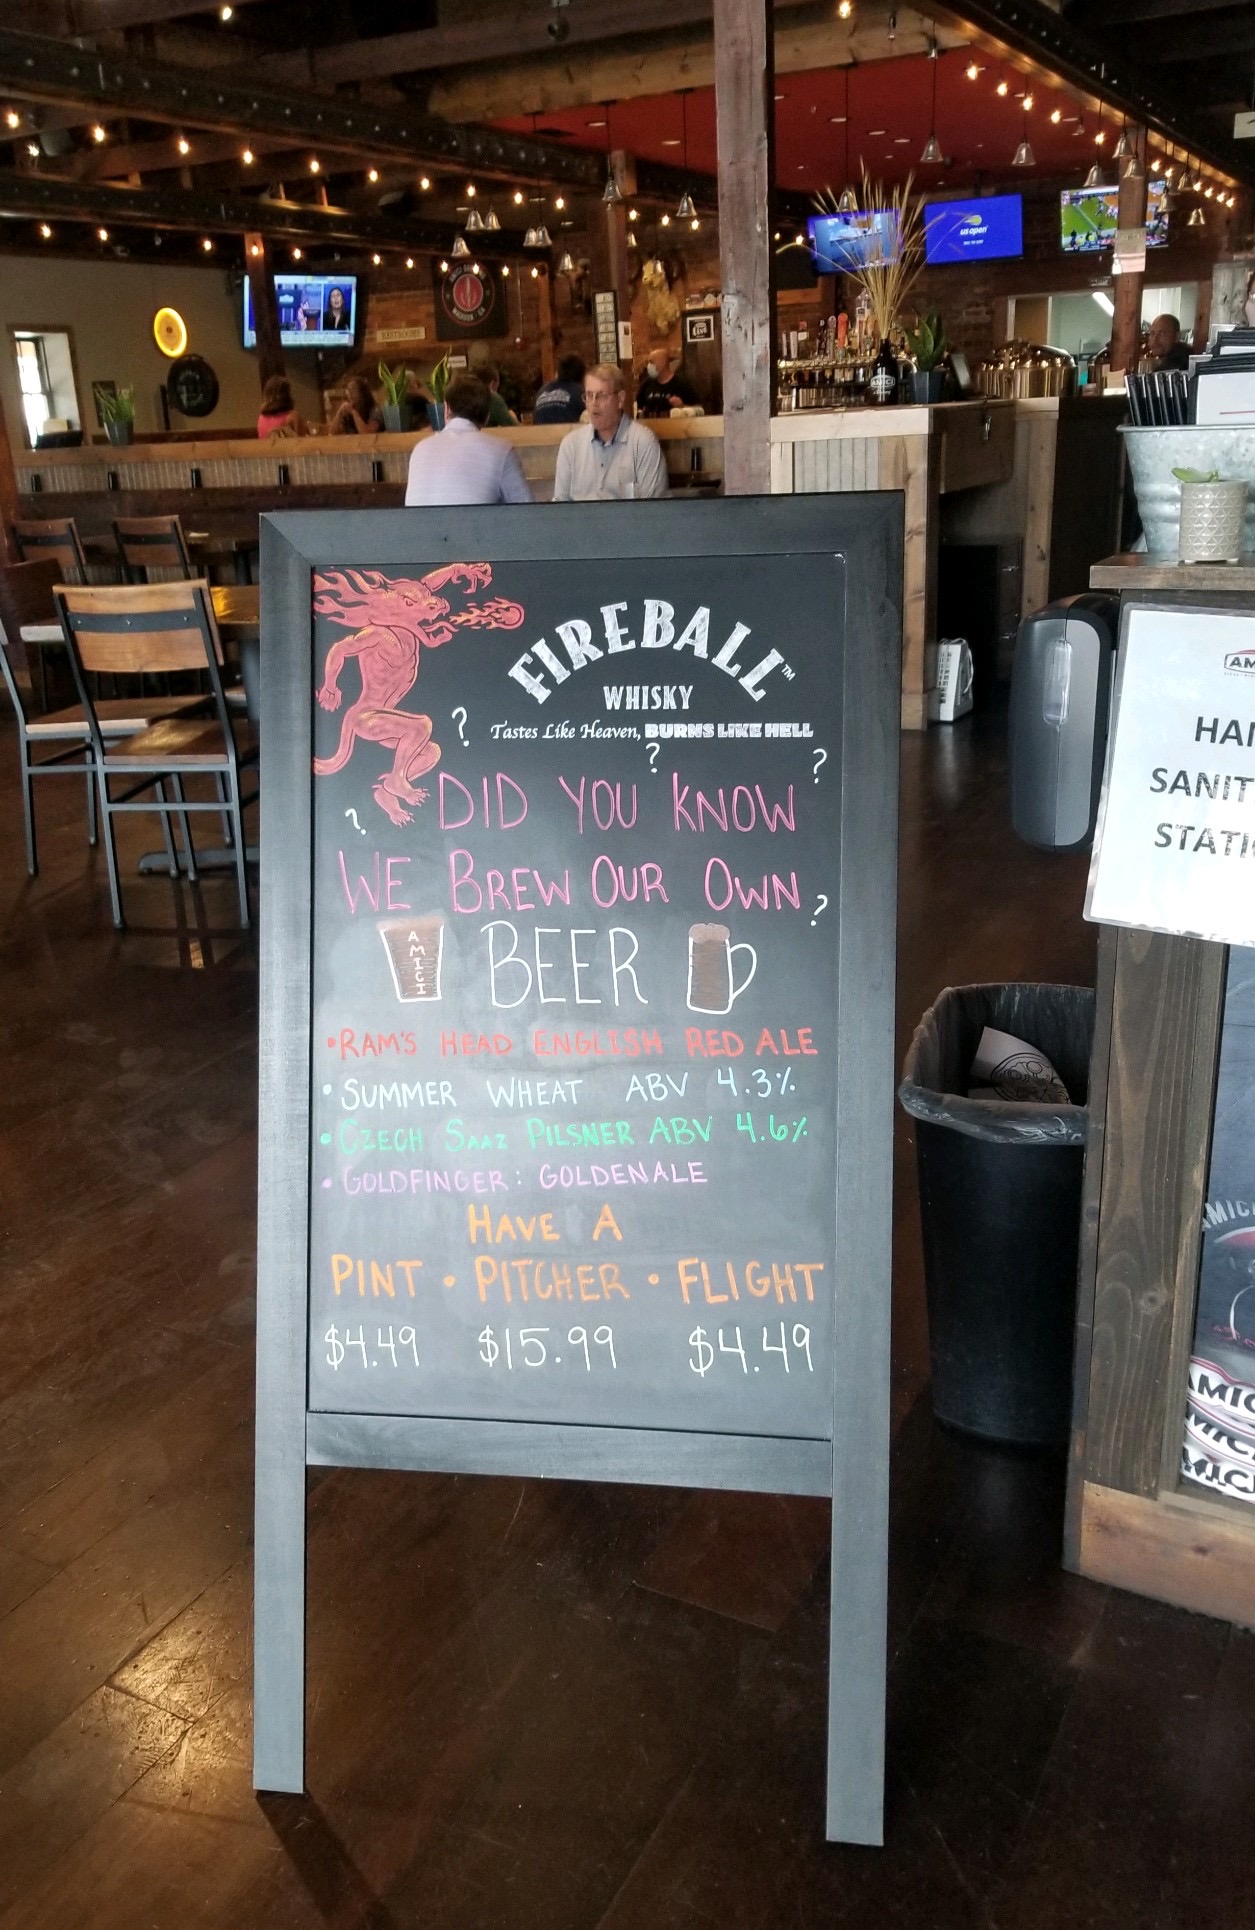 us open
FIREBALL™
WHISKY
Tastes Like Heaven, BURNS LIKE HELL
?
?
?
DID YOU KNOW
?
WE BREW OUR OWN
?
AMICI
BEER
•RAM'S HEAD ENGLISH RED ALE
•SUMMER WHEAT ABV 4.3%
•CZECH SAAZ PILSNER ABV 4.6%
•GOLDFINGER: GOLDENALE
HAVE A
PINT • PITCHER • FLIGHT
$4.49 $15.99 $4.49
AMICI